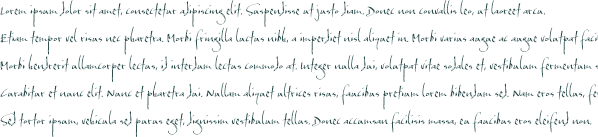 Lorem ipsum dolor sit amet, consectetur adipiscing elit. Suspendisse at justo diam. Donec non convallis leo, at laoreet arcu.
Etiam tempor vel risus nec pharetra. Morbi fringilla luctus nibh, a imperdiet nisl aliquet in. Morbi varius augue ac augue volutpat faci
Morbi hendrerit ullamcorper lectus, id interdum lectus commodo at. Integer nulla dui, volutpat vitae sodales et, vestibulum fermentum
Curabitur et nunc elit. Nunc et pharetra dui. Nullam aliquet ultrices risus, faucibus pretium lorem bibendum sed. Nam eros tellus, fe
Sed tortor ipsum, vehicula sed purus eget, dignissim vestibulum tellus. Donec accumsan facilisis massa, eu faucibus eros eleifend non.